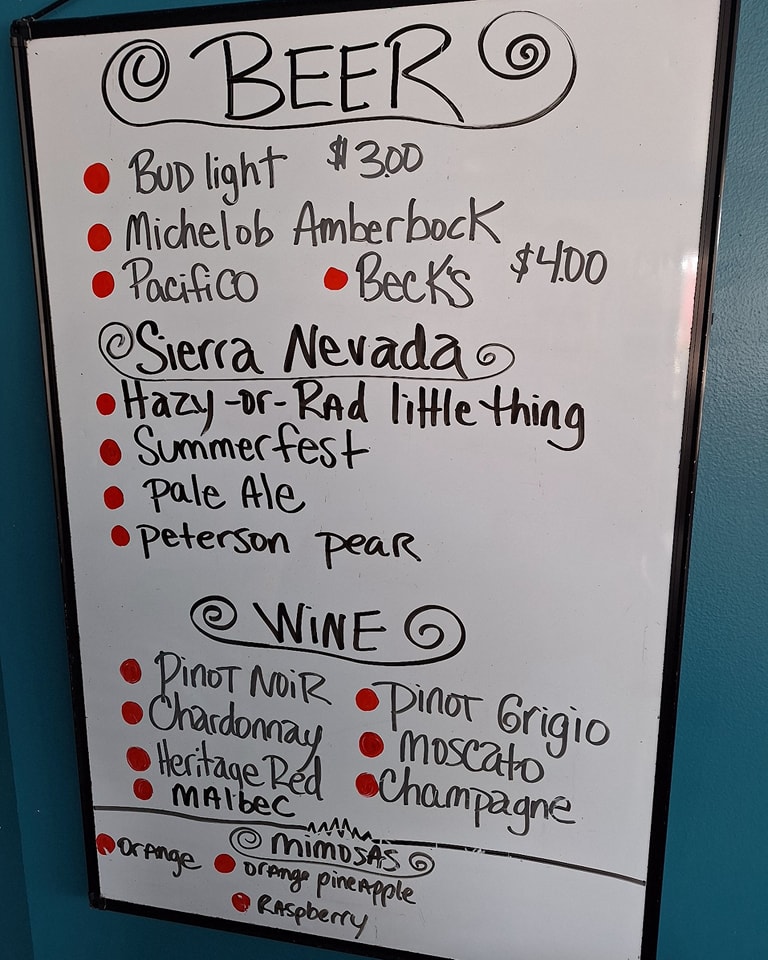 BEER
Bud light $3.00
Michelob Amberbock
Pacifico Beck's $4.00
Sierra Nevada
Hazy-or-Rad little thing
Summerfest
Pale Ale
Peterson pear
WINE
Pinot Noir Pinot Grigio
Chardonnay Moscato
Heritage Red Champagne
Malbec
Mimosas
Orange Orange pineapple
Raspberry